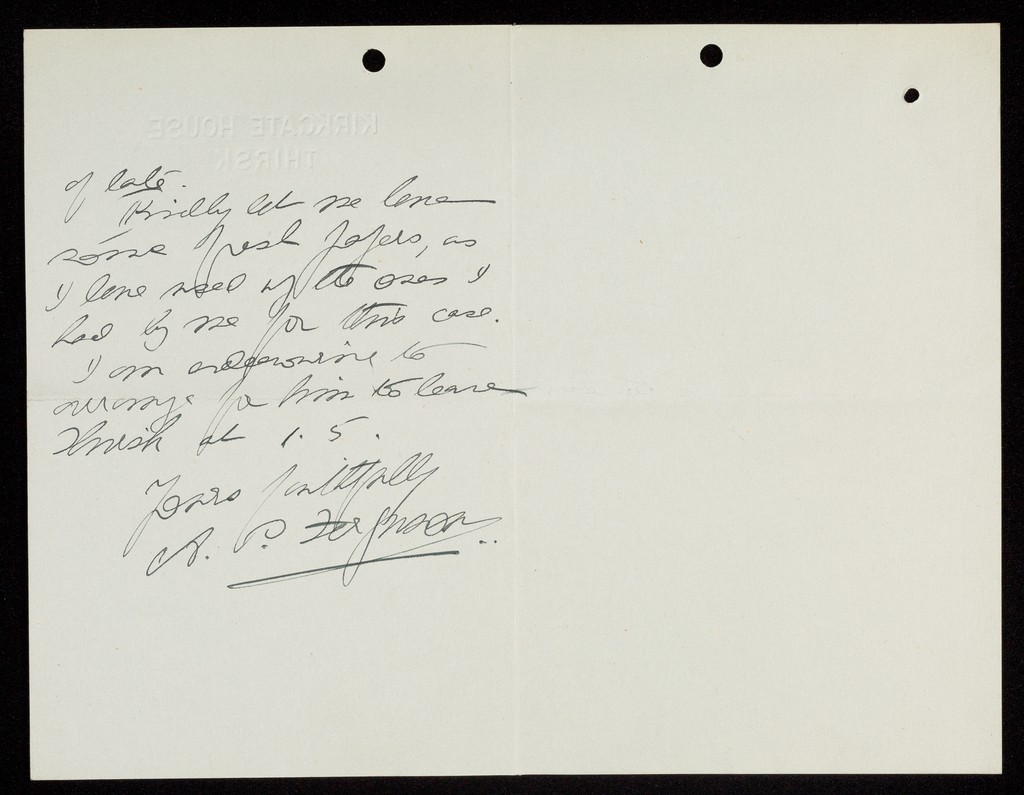 KIRKGATE HOUSE
THIRSK
of late.
Kindly let me have
some fresh papers, as
I have used up the ones I
had by me for this case.
I am endeavouring to
arrange for him to leave
Thirsk at 1.5.
Yours faithfully
A. P. Ferguson